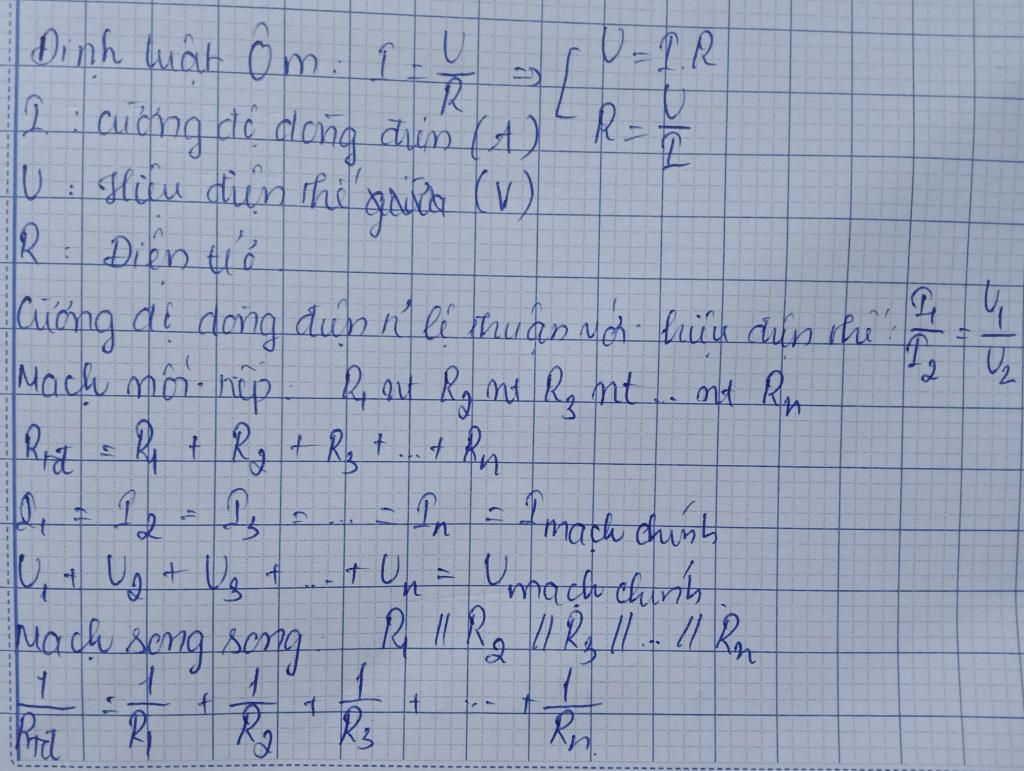 Định luật Ôm: I = U/R => [ U = I.R
R = U/I
I : cường độ dòng điện (A)
U : Hiệu điện thế (V)
R : Điện trở
Cường độ dòng điện tỉ lệ thuận với hiệu điện thế: I₁/I₂ = U₁/U₂
Mạch nối tiếp. R₁ nt R₂ nt R₃ nt ... nt Rₙ
Rtđ = R₁ + R₂ + R₃ + ... + Rₙ
I₁ = I₂ = I₃ = ... = Iₙ = I mạch chính
U₁ + U₂ + U₃ + ... + Uₙ = U mạch chính.
Mạch song song R₁ // R₂ // R₃ // ... // Rₙ
1/Rtđ = 1/R₁ + 1/R₂ + 1/R₃ + ... + 1/Rₙ